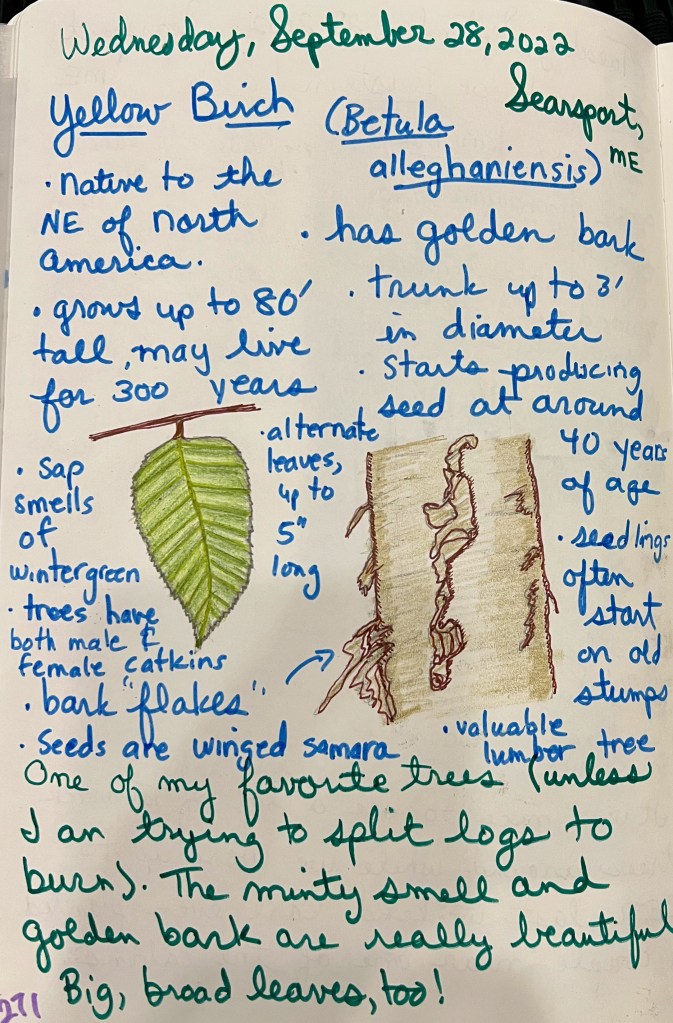 Wednesday, September 28, 2022
Searsport,
ME
Yellow Birch
(Betula
alleghaniensis)
· native to the
NE of north
america.
· grows up to 80'
tall, may live
for 300 years
· has golden bark
· trunk up to 3'
in diameter
· starts producing
seed at around
40 years
of age
· sap
smells
of
wintergreen
· trees have
both male &
female catkins
· bark "flakes"
· Seeds are winged samara
· alternate
leaves,
up to
5"
long
· seedlings
often
start
on old
stumps
· valuable
lumber tree
One of my favorite trees (unless
I an trying to split logs to
burn). The minty smell and
golden bark are really beautiful
Big, broad leaves, too!
271